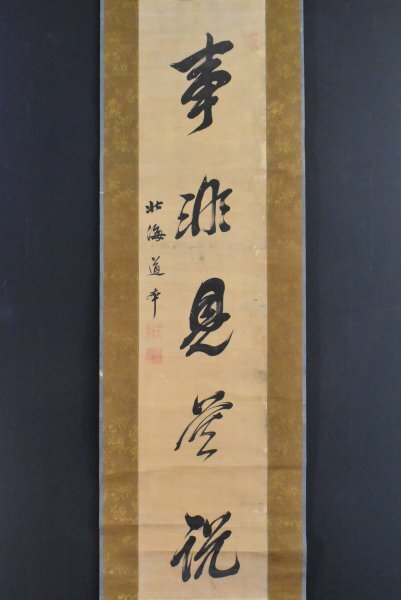 事非見莫説
北海道本